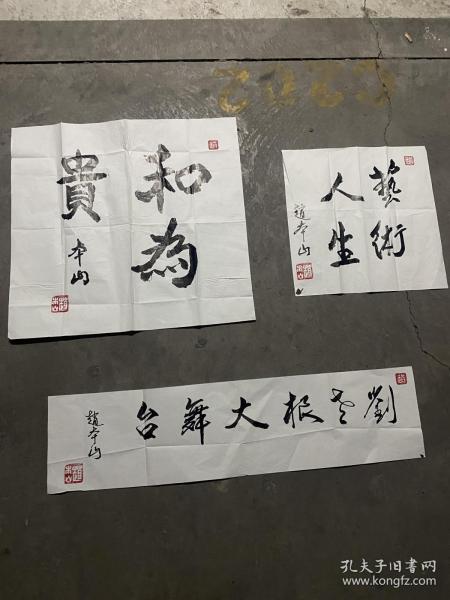 和為
貴
本山
藝術
人生
趙本山
劉老根大舞台
趙本山
孔夫子旧书网
www.kongfz.com